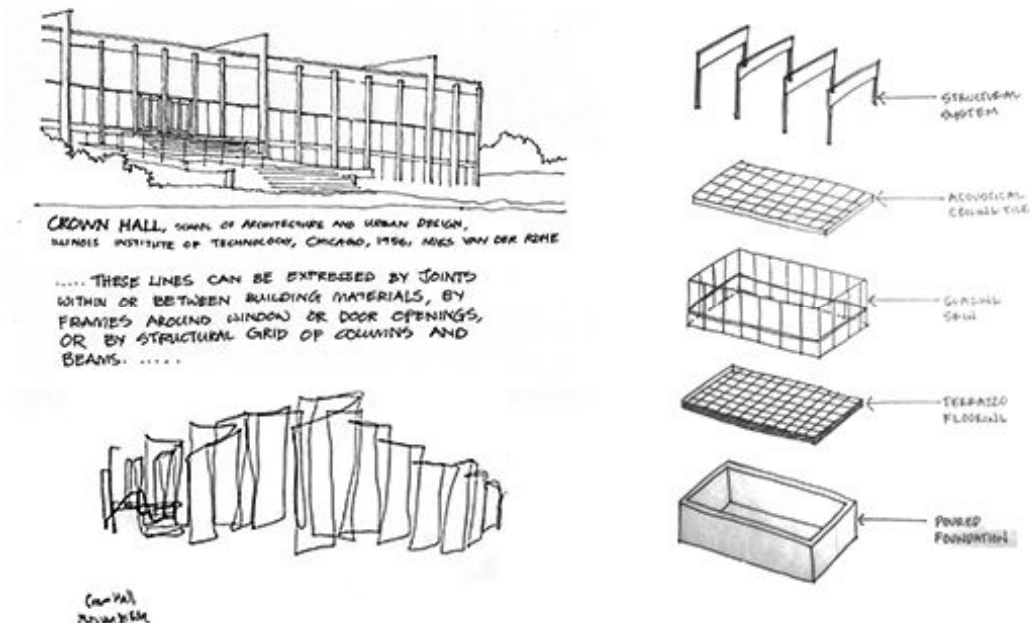 CROWN HALL, SCHOOL OF ARCHITECTURE AND URBAN DESIGN,
ILLINOIS INSTITUTE OF TECHNOLOGY, CHICAGO, 1956, MIES VAN DER ROHE
..... THESE LINES CAN BE EXPRESSED BY JOINTS
WITHIN OR BETWEEN BUILDING MATERIALS, BY
FRAMES AROUND WINDOW OR DOOR OPENINGS,
OR BY STRUCTURAL GRID OF COLUMNS AND
BEAMS. .....
Crown Hall
STRUCTURAL
SYSTEM
ACOUSTICAL
CEILING TILE
GLAZING
SKIN
TERRAZZO
FLOORING
POURED
FOUNDATION